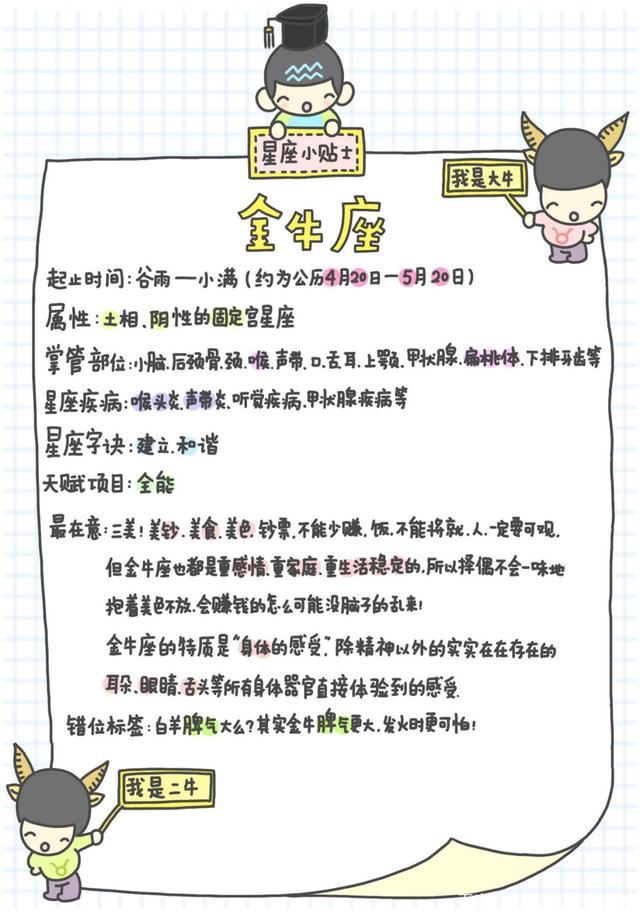 星座小贴士
我是大牛
金牛座
起止时间:谷雨—小满(约为公历4月20日—5月20日)
属性:土相、阴性的固定宫星座
掌管部位:小脑、后颈骨、颈、喉、声带、口、舌、耳、上颚、甲状腺、扁桃体、下排牙齿等
星座疾病:喉头炎、声带炎、听觉疾病、甲状腺疾病等
星座字诀:建立、和谐
天赋项目:全能
最在意:三美!美钞、美食、美色,钞票、不能少赚,饭、不能将就、人、一定要可观,
但金牛座也都是重感情、重家庭、重生活稳定的,所以择偶不会一味地
抱着美色不放,会赚钱的怎么可能没脑子的乱来!
金牛座的特质是“身体的感受”,除精神以外的实实在在存在的
耳朵、眼睛、舌头等所有身体器官直接体验到的感受.
错位标签:白羊脾气大么?其实金牛脾气更大,发火时更可怕!
我是二牛